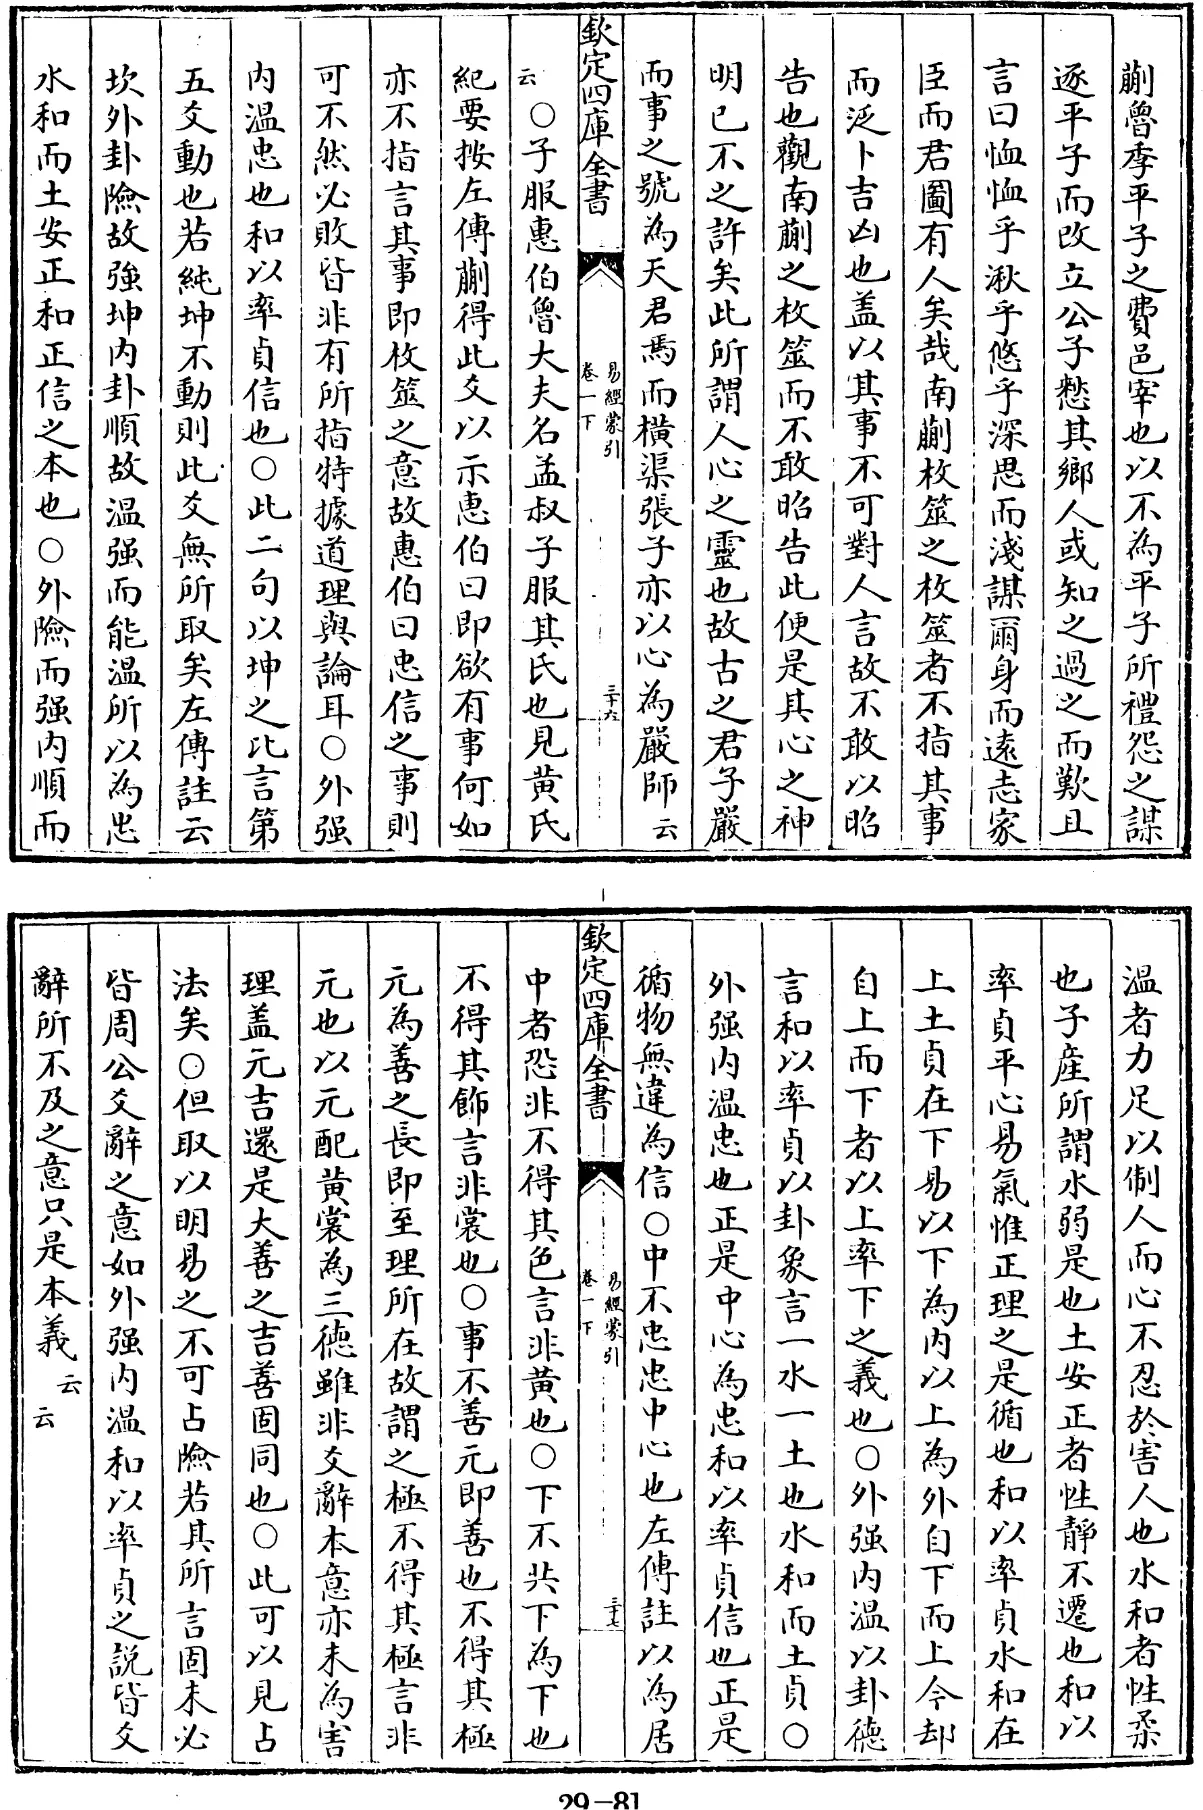 蒯魯季平子之費邑宰也以不為平子所禮怨之謀
逐平子而改立公子憖其鄉人或知之過之而歎且
言曰恤恤乎湫乎悠乎深思而淺謀爾身而遠志家
臣而君圖有人矣哉南蒯枚筮之枚筮者不指其事
而泛卜吉凶也蓋以其事不可對人言故不敢以昭
告也觀南蒯之枚筮而不敢昭告此便是其心之神
明已不之許矣此所謂人心之靈也故古之君子嚴
而事之號為天君焉而橫渠張子亦以心為嚴師云
欽定四庫全書
易經蒙引
卷一下
三十六
云○子服惠伯魯大夫名孟叔子服其氏也見黄氏
紀要按左傳蒯得此爻以示惠伯曰即欲有事何如
亦不指言其事即枚筮之意故惠伯曰忠信之事則
可不然必敗皆非有所指特據道理與論耳○外强
内温忠也和以率貞信也○此二句以坤之比言第
五爻動也若純坤不動則此爻無所取矣左傳註云
坎外卦險故強坤内卦順故温强而能温所以為忠
水和而土安正和正信之本也○外險而强内順而
温者力足以制人而心不忍於害人也水和者性柔
也子產所謂水弱是也土安正者性靜不遷也和以
率貞平心易氣惟正理之是循也和以率貞水和在
上土貞在下易以下為内以上為外自下而上今却
自上而下者以上率下之義也○外强内温以卦德
言和以率貞以卦象言一水一土也水和而土貞○
外强内温忠也正是中心為忠和以率貞信也正是
循物無違為信○中不忠忠中心也左傳註以為居
欽定四庫全書
易經蒙引
卷一下
三十七
中者恐非不得其色言非黄也○下不共下為下也
不得其飾言非裳也○事不善元即善也不得其極
元為善之長即至理所在故謂之極不得其極言非
元也以元配黄裳為三德雖非爻辭本意亦未為害
理蓋元吉還是大善之吉善固同也○此可以見占
法矣○但取以明易之不可占險若其所言固未必
皆周公爻辭之意如外强内温和以率貞之說皆爻
辭所不及之意只是本義云云
29-81